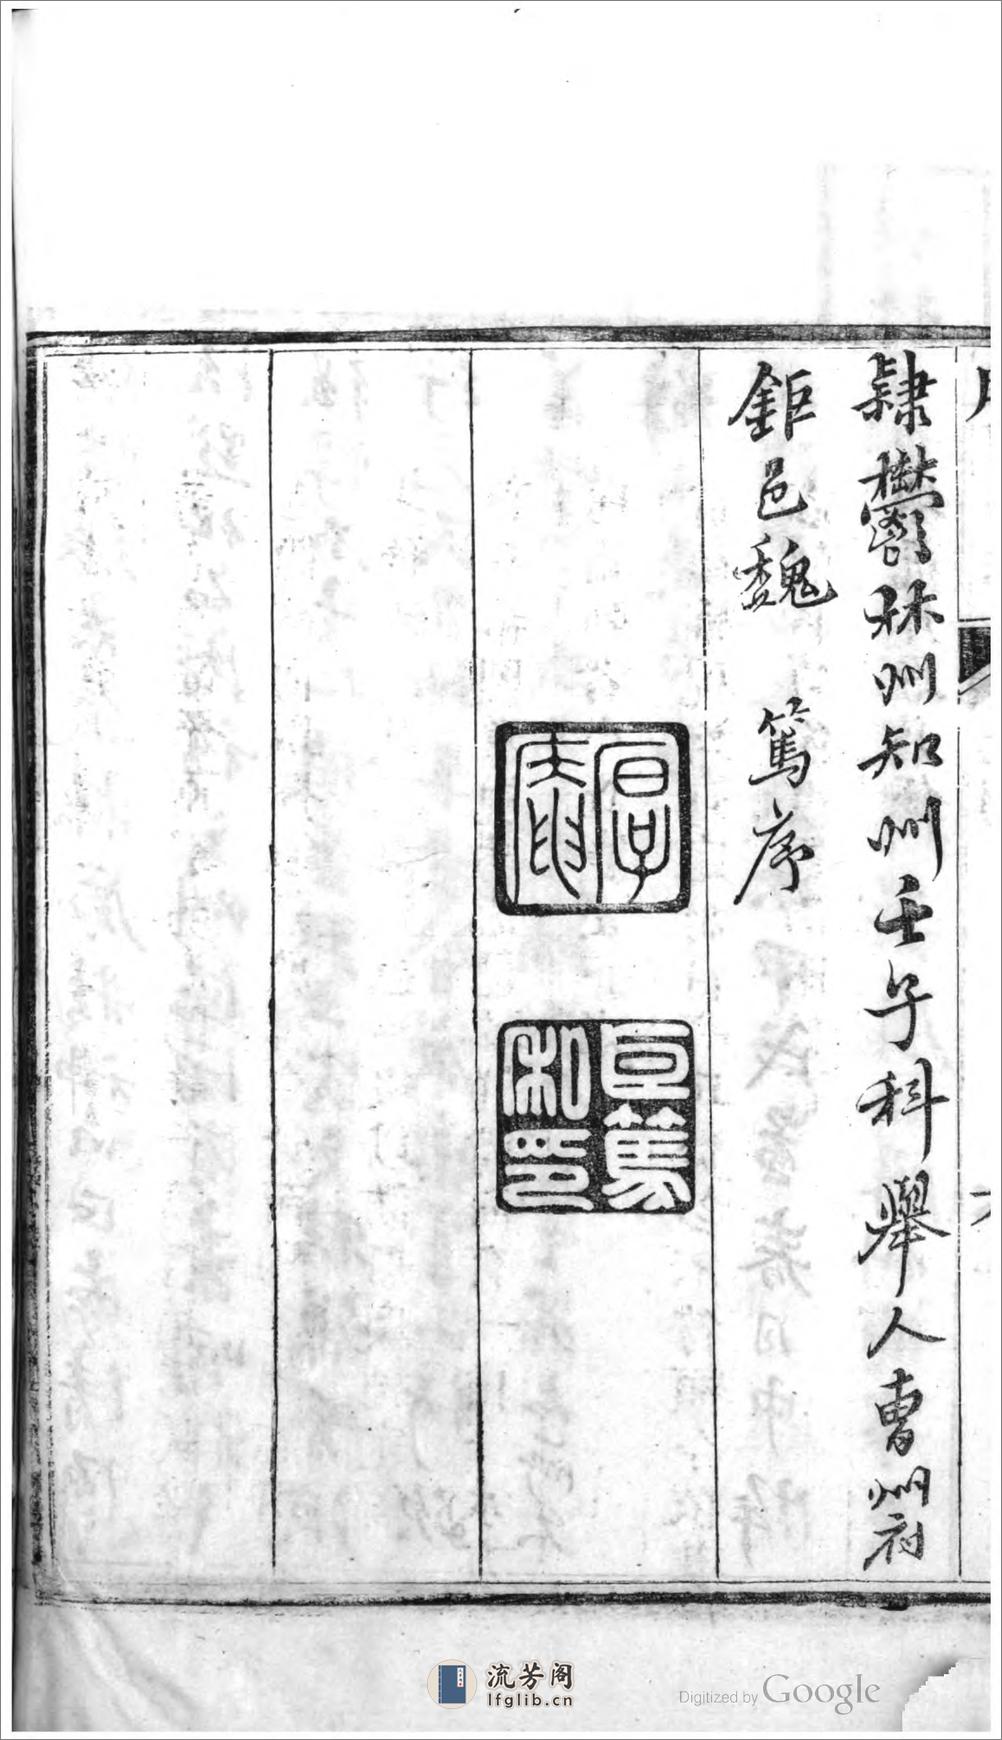 隸鬱林州知州壬子科舉人曹州府
鉅邑魏　篤序
臣篤
私印
流芳阁
lfglib.cn
Digitized by Google